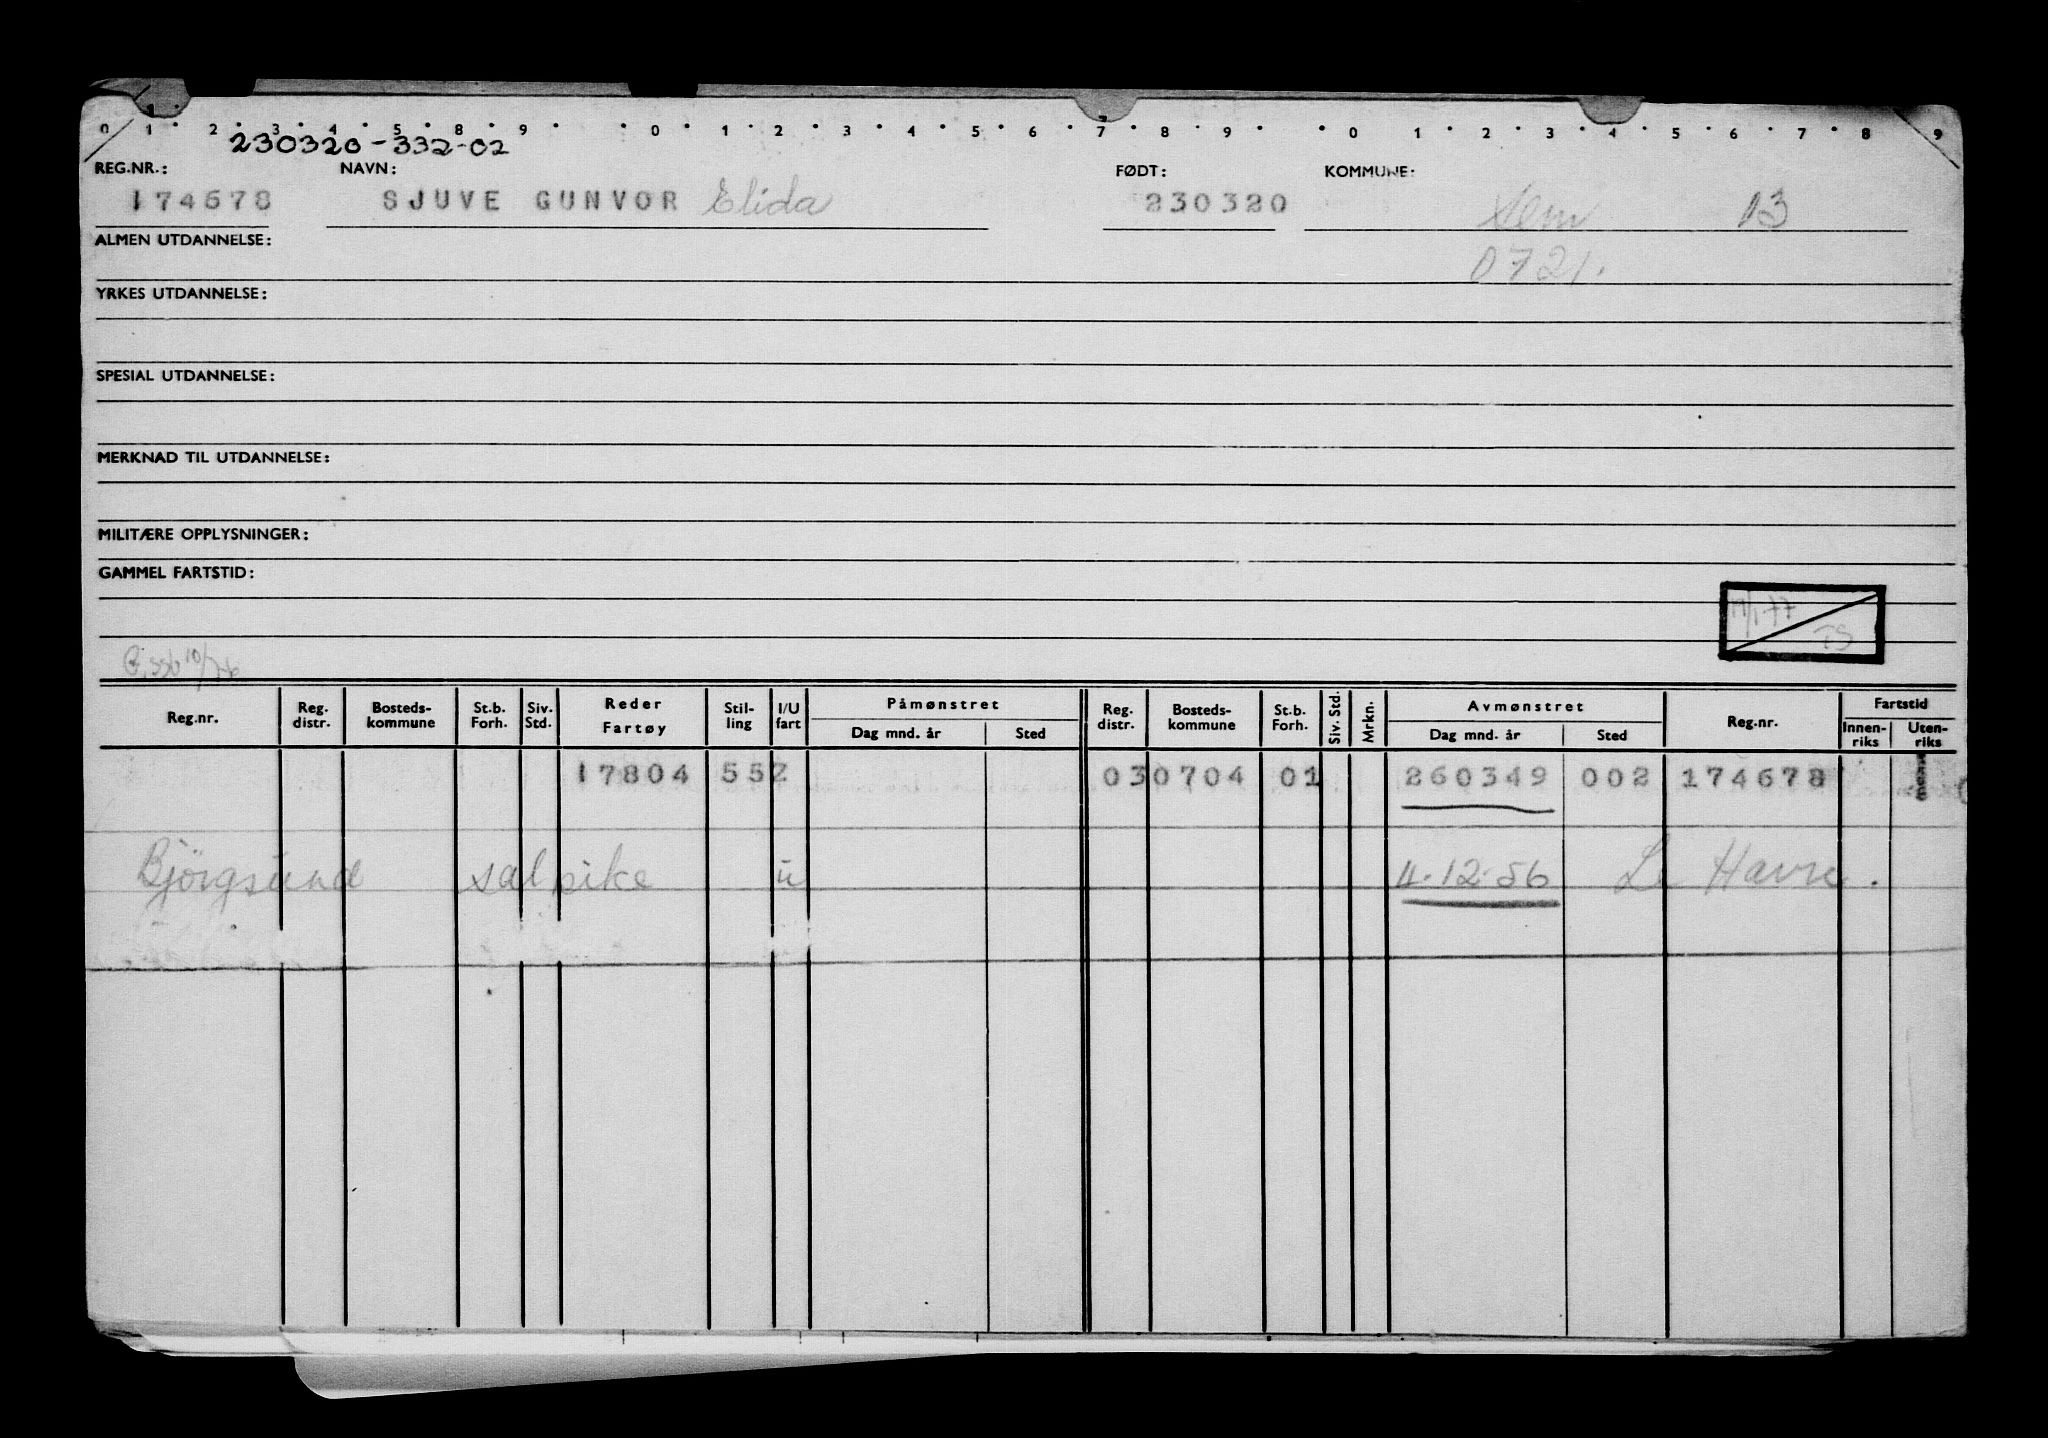 0 1 2 3 4 5 8 9 0 1 2 3 4 5 6 7 8 9 0 1 2 3 4 5 6 7 8 9
230320-332-02
REG.NR.: NAVN: FØDT: KOMMUNE:
174678 SJUVE GUNVOR Elida 230320 Sem 13
ALMEN UTDANNELSE: 0721.
YRKES UTDANNELSE:
SPESIAL UTDANNELSE:
MERKNAD TIL UTDANNELSE:
MILITÆRE OPPLYSNINGER:
GAMMEL FARTSTID:
19/1-77
TS
Reg.nr. Reg. distr. Bosteds-kommune St.b. Forh. Siv. Std. Reder Fartøy Stil-ling I/U fart Påmønstret Dag mnd. år Sted Reg. distr. Bosteds-kommune St.b. Forh. Siv. Std. Mrkn. Avmønstret Dag mnd. år Sted Reg.nr. Fartstid Innen-riks Uten-riks
17804 552 030704 01 260349 002 174678
Björgsund salpike u 11.12.56 Le Havre.